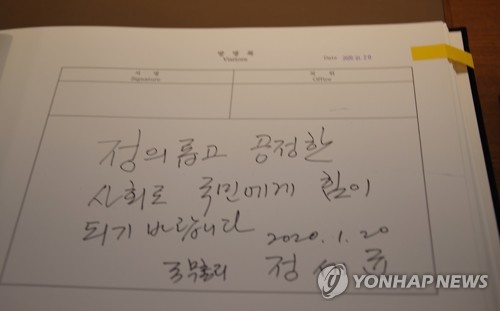 방명록
Visitors
Date. 2020. 01. 20
서명
Signature
직위
Office
정의롭고 공정한
사회로 국민에게 힘이
되기 바랍니다 2020.1.20
국무총리 정세균
YONHAP NEWS